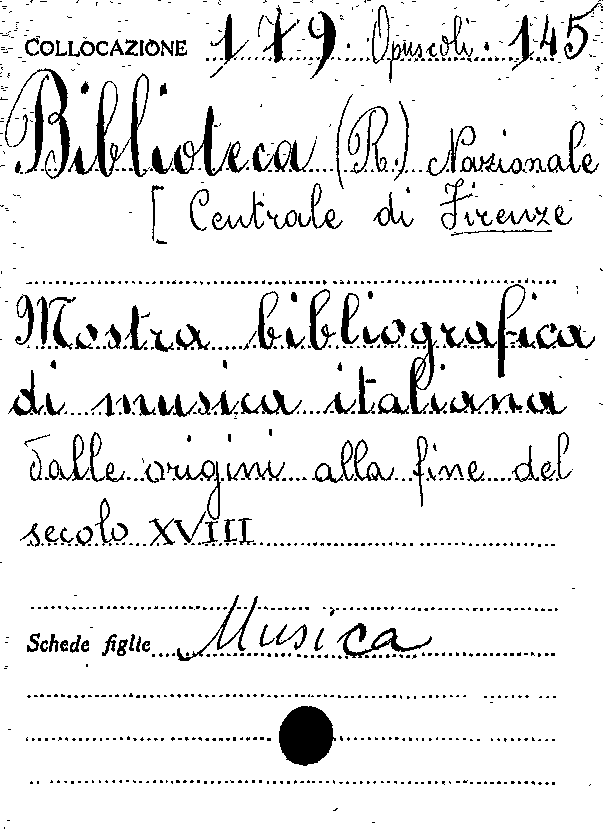 COLLOCAZIONE 179. Opuscoli. 145
Biblioteca (R.) Nazionale
[ Centrale di Firenze
Mostra bibliografica
di musica italiana
dalle origini alla fine del
secolo XVIII
Schede figlie Musica